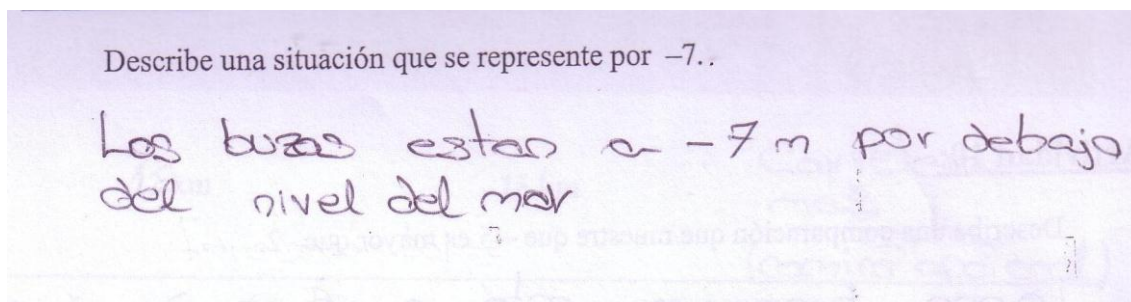 Describe una situación que se represente por –7..
Los buzos estan a -7 m por debajo
del nivel del mar